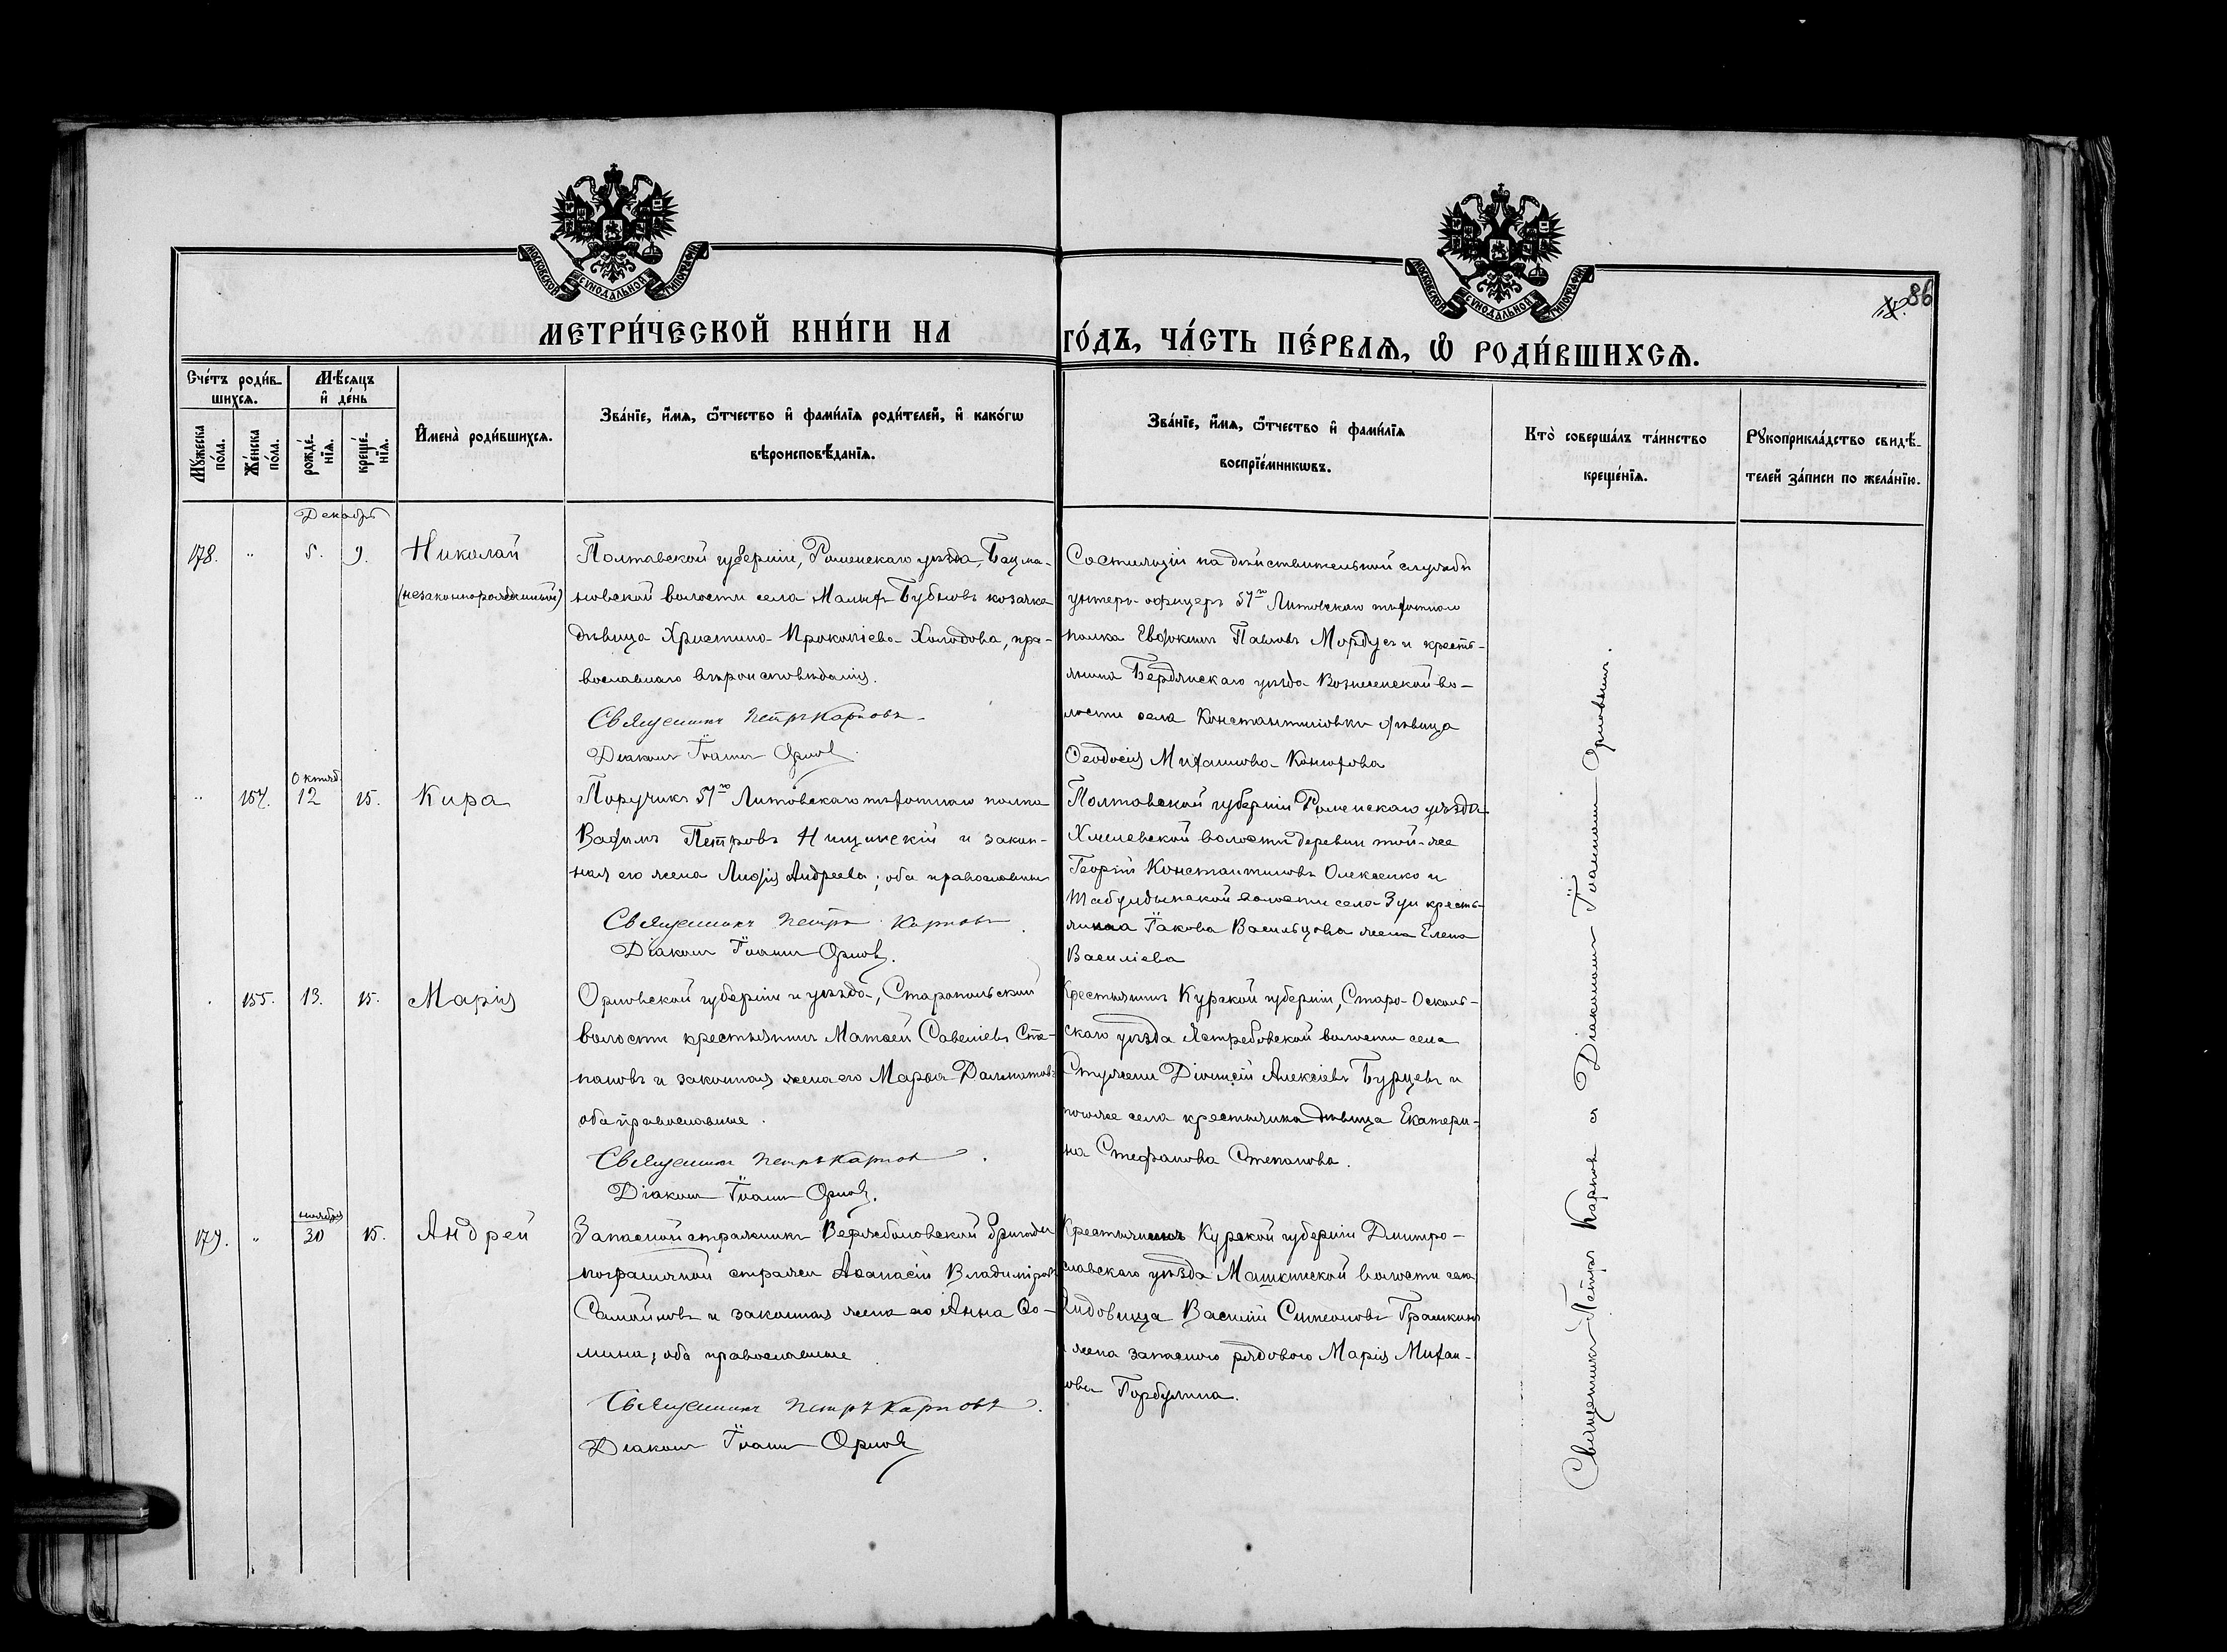 МОСКОВСКОЙ СѴНОДАЛЬНОЙ ТИПОГРАФІИ
МОСКОВСКОЙ СѴНОДАЛЬНОЙ ТИПОГРАФІИ
86
МЕТРИ́ЧЕСКОЙ КНИ́ГИ НА ГО́ДЪ, ЧА́СТЬ ПЕ́РВАѦ, Ѡ РОДИ́ВШИХСѦ.
Сче́тъ роди́в-
шихсѧ.
Мꙋ́жеска по́ла.
Же́нска по́ла.
Мѣ́сѧцъ
и҆ де́нь
рожде́-
нїѧ.
креще́-
нїѧ.
И҆мена̀ роди́вшихсѧ.
Зва́нїе, и҆́мѧ, ѻ҆́тчество и҆ фами́лїѧ роди́телей, и҆ како́гѡ
вѣроисповѣ́данїѧ.
Зва́нїе, и҆́мѧ, ѻ҆́тчество и҆ фами́лїѧ
воспрїе́мникѡвъ.
Кто̀ соверша́лъ та́инство
креще́нїѧ.
Рꙋкоприкла́дство свидѣ́-
телей за́писи по жела́нїю.
Декабрь
178. " 5. 9. Николай
(незаконнорожденный)
Полтавской губерніи, Роменскаго уѣзда,
новской волости села Бубновъ козачка
дѣвица Христина Прокопіева Холодова, пра-
вославнаго вѣроисповѣданія.
Священникъ Петръ Карповъ
Діаконъ Іоаннъ Орловъ
Состоящій на дѣйствительной службѣ
унтеръ-офицеръ 51го Литовскаго пѣхотнаго
полка Евфокимъ Павловъ и кресть-
янка Бердянскаго уѣзда во-
лости села Константиновки дѣвица
Ѳеодосія Михаилова
Октяб.
" 154. 12 15. Кира
Поручикъ 51го Литовскаго пѣхотнаго полка
Вадимъ Петровъ Нищинскій и закон-
ная его жена Лидія Андреева; оба православные
Священникъ Петръ Карповъ
Діаконъ Іоаннъ Орловъ.
Полтавской губерніи Роменскаго уѣзда
Хмелевской волости деревни той-же
Георгій Константиновъ Олексенко и
волости села кресть-
янина Іакова жена Елена
Василіева
155. 13. 15. Марія
Орловской губерніи и уѣзда,
волости крестьянинъ Матѳей Савеліевъ Сте-
пановъ и законная жена его Марѳа
оба православные.
Священникъ Петръ Карповъ
Діаконъ Іоаннъ Орловъ.
Крестьянинъ Курской губерніи, Старо-Осколь-
скаго уѣзда Ястребовской волости села
Діонисій Алексіевъ Бурцевъ и
того же села крестьянка дѣвица Екатери-
на Стефанова Степанова.
ноября
179. " 30 15. Андрей
Запасной стражникъ бригады
пограничной стражи Аѳанасій Владиміровъ
Самойловъ и законная жена его Анна Ѳо-
мина; оба православные
Священникъ Петръ Карповъ.
Діаконъ Іоаннъ Орловъ
Крестьянинъ Курской губерніи Дмитро-
славскаго уѣзда Машкинской волости села
Василій Симеоновъ
жена запасного рядового Марія Михаи-
лова Горбулина.
Священникъ Петръ Карповъ съ Діакономъ Іоанномъ Орловымъ.